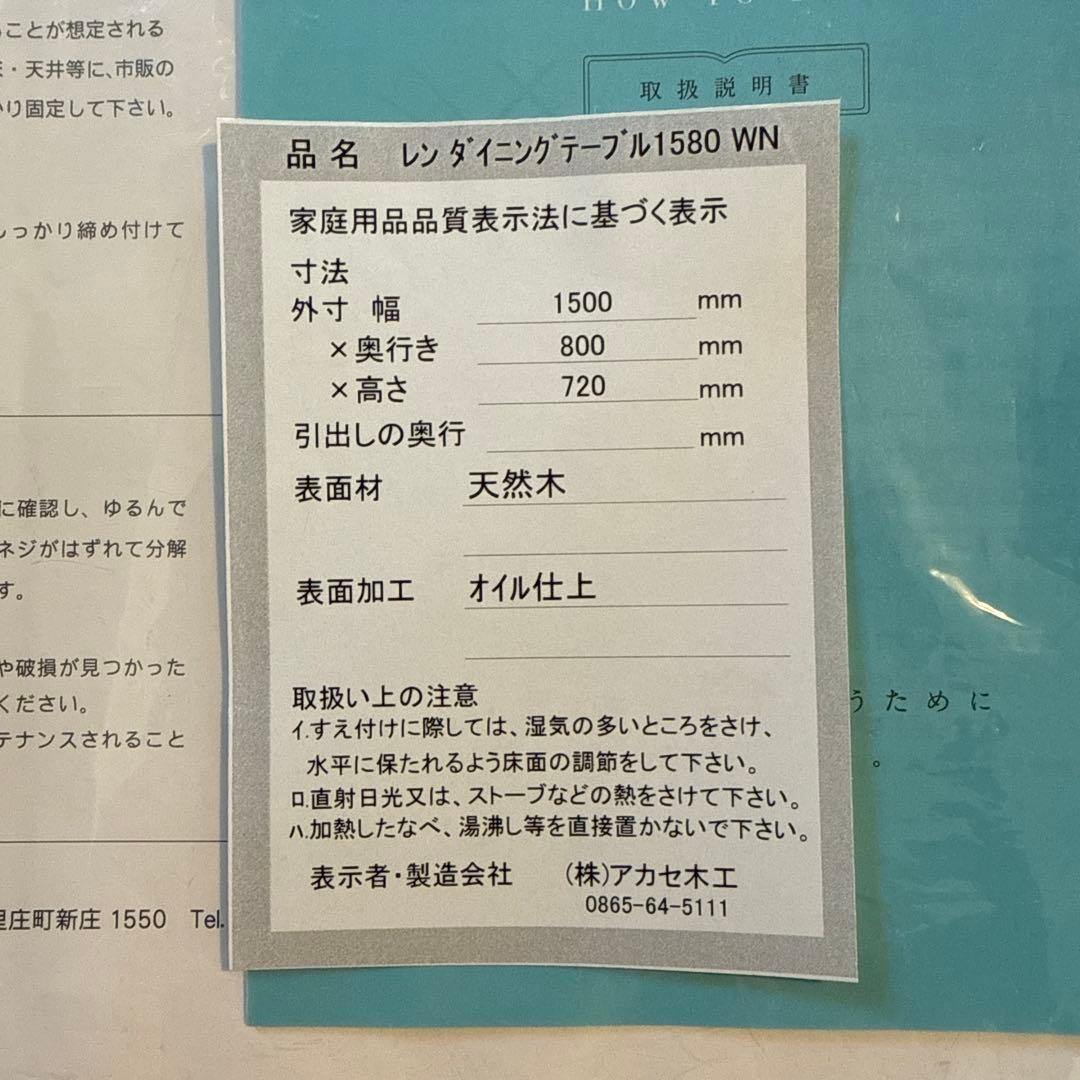 ことが想定される
・天井等に、市販の
り固定して下さい。
しっかり締め付けて
に確認し、ゆるんで
ネジがはずれて分解
す。
や破損が見つかった
ください。
テナンスされること
里庄町新庄 1550 Tel.
HOW TO
取扱説明書
品名 レン ダイニングテーブル1580 WN
家庭用品品質表示法に基づく表示
寸法
外寸 幅 1500 mm
×奥行き 800 mm
×高さ 720 mm
引出しの奥行 mm
表面材 天然木
表面加工 オイル仕上
取扱い上の注意
イ.すえ付けに際しては、湿気の多いところをさけ、
水平に保たれるよう床面の調節をして下さい。
ロ.直射日光又は、ストーブなどの熱をさけて下さい。
ハ.加熱したなべ、湯沸し等を直接置かないで下さい。
表示者・製造会社 (株)アカセ木工
0865-64-5111
うために
。